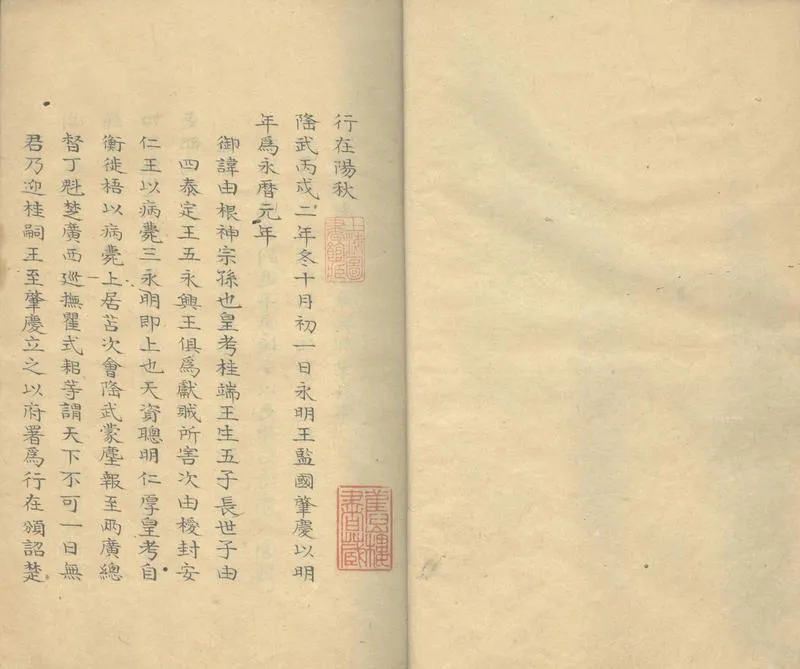 行在陽秋
隆武丙戌二年冬十月初一日永明王監國肇慶以明
年爲永暦元年
御諱由根神宗孫也皇考桂端王生五子長世子由
四泰定王五永興王俱爲獻賊所害次由封安
仁王以病薨三永明即上也天資聰明仁厚皇考自
衡徙梧以病薨上居苫次會隆武蒙塵報至兩廣總
督丁魁楚廣西巡撫瞿式耜等謂天下不可一日無
君乃迎桂嗣王至肇慶立之以府署爲行在頒詔楚
上海圖
書館藏